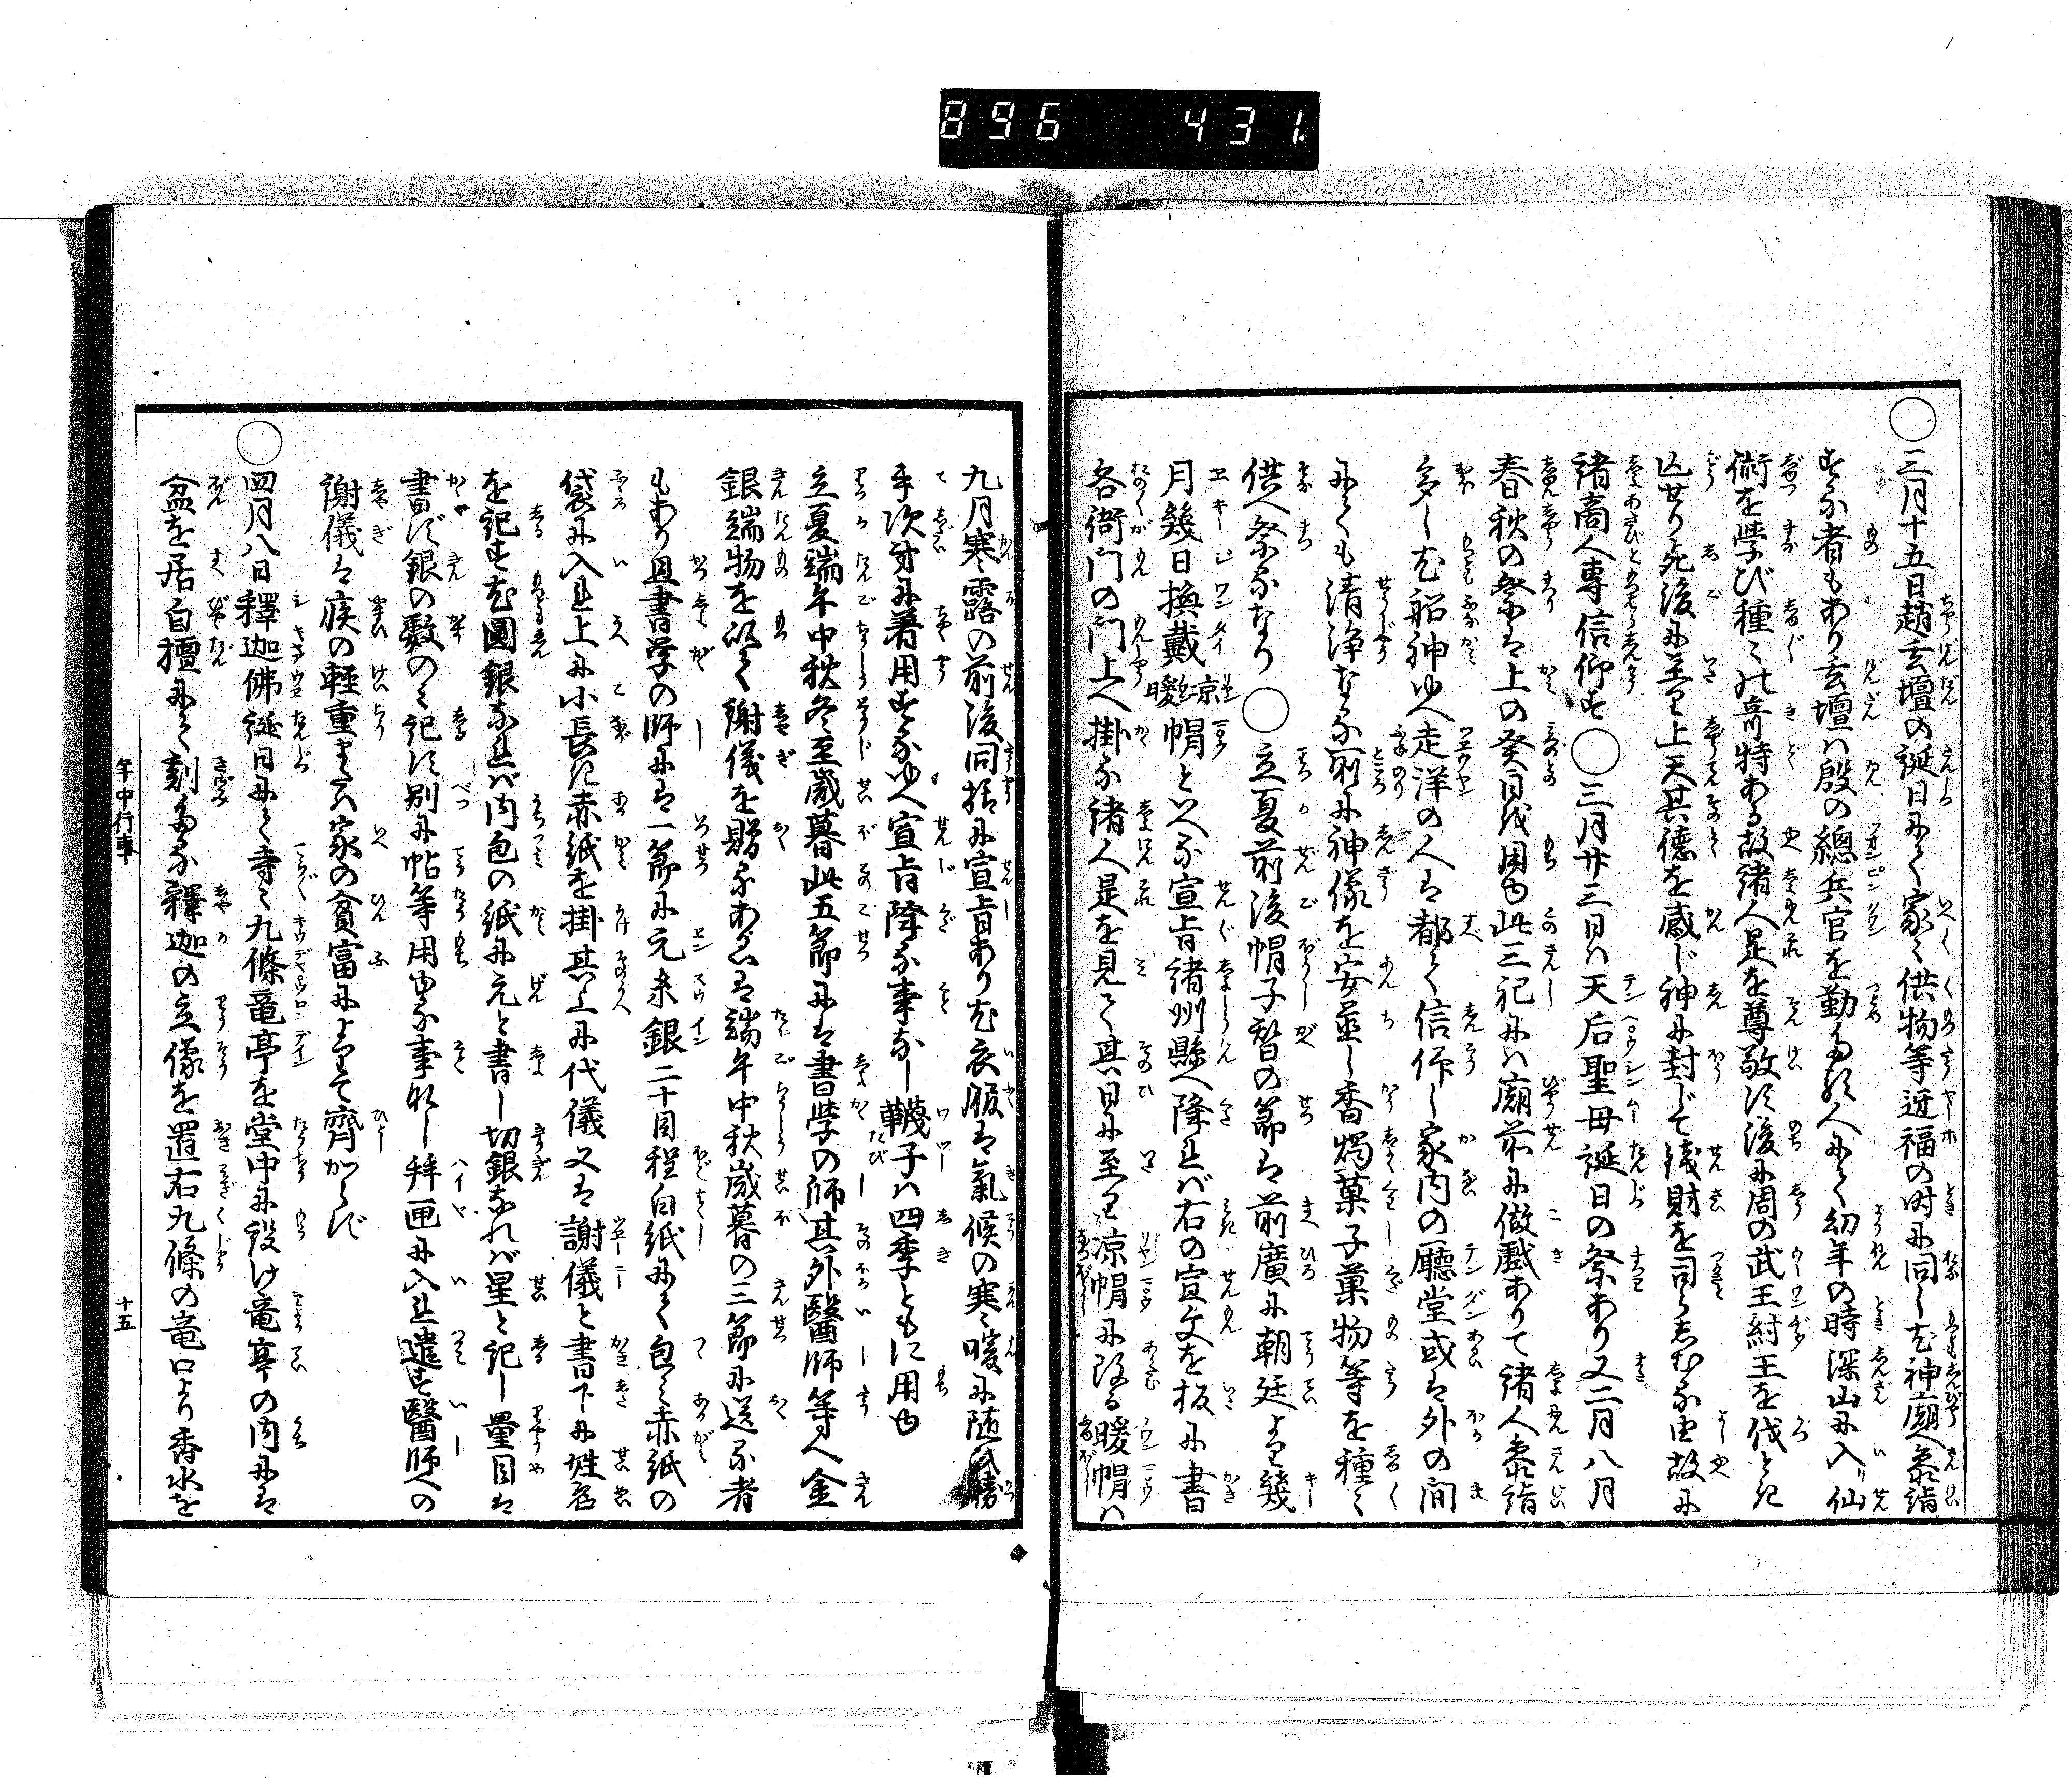 896 431
〇三月十五日趙玄壇の誕日にて家〻供物等迎福の時に同し尤神廟へ参詣
する者もあり玄壇ハ殷の總兵官を勤める人にて幼年の時深山に入リ仙
術を学び種〻の奇特ある故諸人是を尊敬す後に周の武王紂王を伐とき
亡せり死後に至り上天其徳を感じ神に封じて錢財を司らしむる由故に
諸商人専信仰す〇三月廿三日ハ天后聖母誕日の祭あり又二月八月
春秋の祭は上の癸日を用ゆ此三祀にハ廟前に做戯ありて諸人参詣
多し尤船神ゆへ走洋の人は都て信仰し家内の廳堂或は外の間
にても清浄なる所に神像を安置し香燭菓子菓物等を種〻
供へ祭るなり〇立夏前後帽子替の節は前廣に朝廷より幾
月幾日換戴涼暖帽といへる宣旨諸州縣へ降れバ右の宣文を板に書
各衙門の門上へ掛る諸人是を見て其日に至り涼帽に改る暖帽ハ
九月寒露の前後同様に宣旨あり尤衣服は氣候の寒暖に随ひ勝
手次第に着用するゆへ宣旨降る事なし韈子ハ四季ともに用ゆ
立夏端午中秋冬至歳暮此五節には書学の師其外醫師等へ金
銀端物を以て謝儀を贈るあるは端午中秋歳暮の三節に送る者
もあり且書学の師には一節に元糸銀二十目程白紙にて包み赤紙の
袋に入れ上に小長き赤紙を掛其上に代儀又は謝儀と書下に姓名
を記す尤圓銀なれバ内包の紙に元と書し切銀なれバ星と記し量目は
書ず銀の数のミ記す別に帖等用ゆる事なし拜匣に入れ遣す醫師への
謝儀は疾の軽重または家の貧富によりて齊からず
〇四月八日釋迦佛誕日にて寺〻九條竜亭を堂中に設け竜亭の内には
盆を居白檀にて刻める釋迦の立像を置右九條の竜口より香水を
年中行事
十五